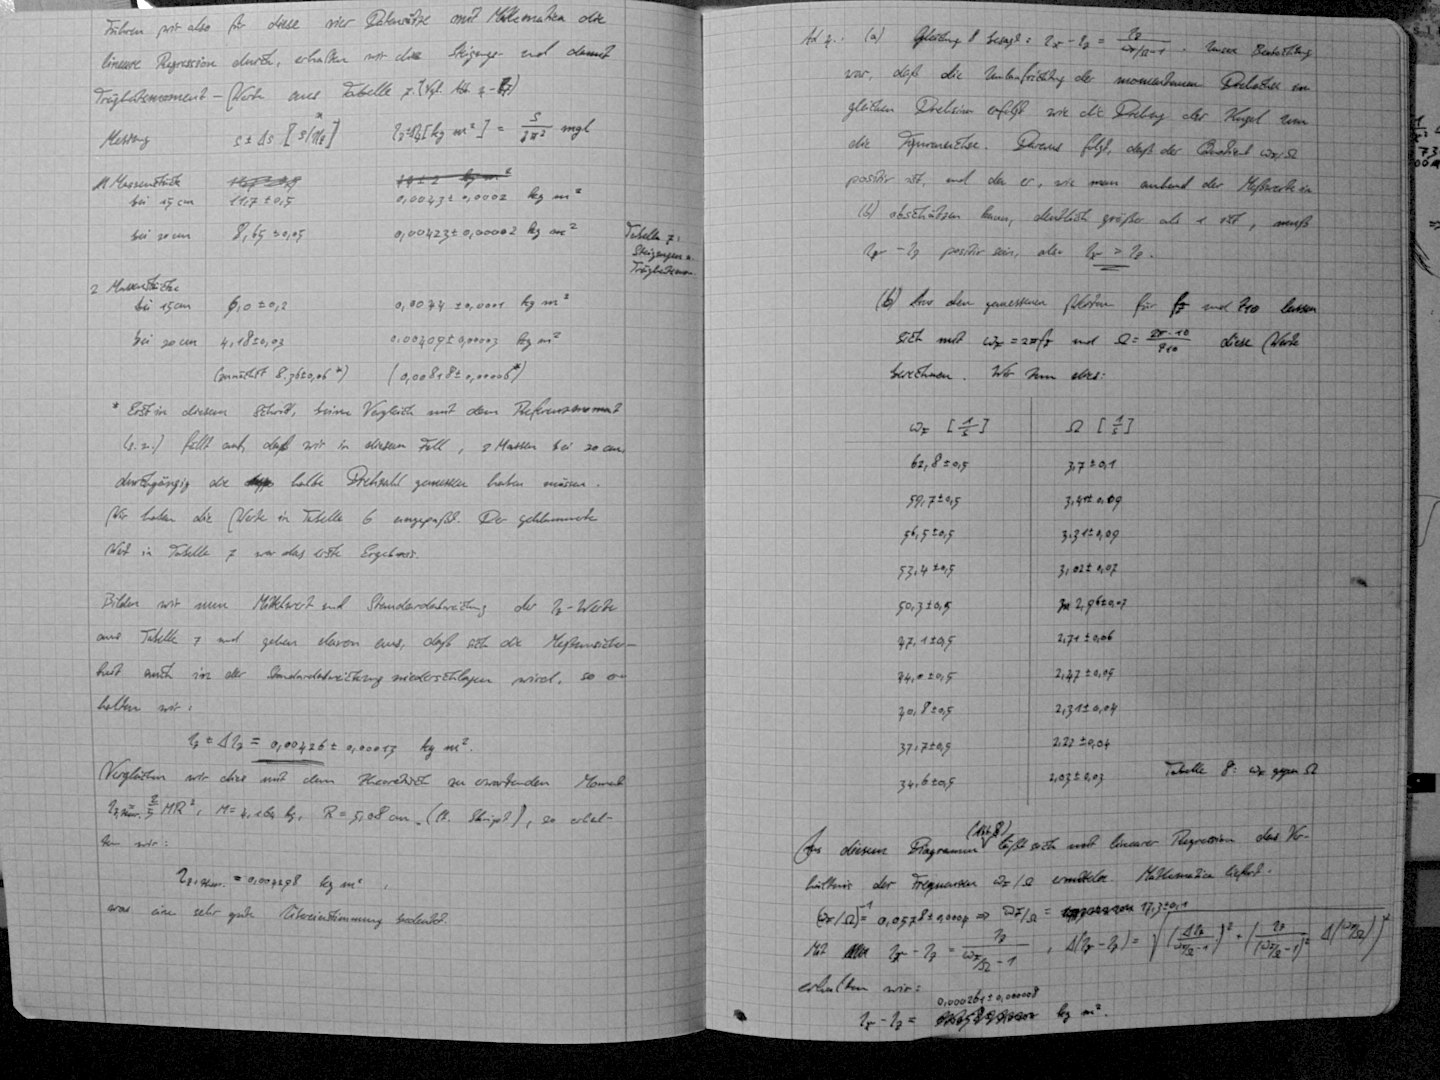 Führen wir also für diese vier Datensätze mit Mathematica die
lineare Regression durch, erhalten wir die Steigungs- und damit
Trägheitsmoment-Werte aus Tabelle 7. (Vgl. Abb. 4-7)
Messung s ± Δs [s/ ] = s/2π² mgl
1 Massenstück
bei 15 cm 11,7 ± 0,5 0,0043 ± 0,0002 kg m²
bei 20 cm 8,65 ± 0,05 0,00423 ± 0,00002 kg m²
Tabelle 7:
Steigungen u.
Trägheitsmom.
2 Massenstücke
bei 15 cm 6,0 ± 0,2 0,0044 ± 0,0001 kg m²
bei 20 cm 4,18 ± 0,03 0,00409 ± 0,00003 kg m²
(zunächst 8.36 ± 0,06 *) (0,00818 ± 0,00006 *)
* Erst in diesem Schritt, beim Vergleich mit dem Referenzmoment
(s.u.) fällt auf, daß wir in diesem Fall, 2 Massen bei 20 cm,
durchgängig die halbe Drehzahl gemessen haben müssen.
Wir haben die Werte in Tabelle 6 angepaßt. Der geklammerte
Wert in Tabelle 7 war das erste Ergebnis.
Bilden wir nun Mittelwert und Standardabweichung der -Werte
aus Tabelle 7 und gehen davon aus, daß sich die Meßunsicher-
heit auch in der Standardabweichung niederschlagen wird, so er-
halten wir:
= 0,00426 ± 0,00013 kg m².
Vergleichen wir dies mit dem theoretisch zu erwartenden Moment
= 2/5 MR², M = 4,164 kg, R = 5,08 cm. (lt. Skript), so erhal-
ten wir:
= 0,004298 kg m²,
was eine sehr gute Übereinstimmung bedeutet.
Ad 4.: (a) Gleichung 8 besagt: Unsere Beobachtung
war, daß die Umlaufrichtung der momentanen Drehachse im
gleichen Drehsinn erfolgt wie die Drehung der Kugel um
die Figurenachse. Daraus folgt, daß der Quotient ωz/Ω
positiv ist, und da er, wie man anhand der Meßwerte in
(b) abschätzen kann, deutlich größer als 1 ist, muß
positiv sein, also
(b) Aus den gemessenen für fz und T10 lassen
sich mit ωz = 2πfz und Ω = 2π·10/T10 diese Werte
berechnen. Wir tun dies:
ωz [1/s] Ω [1/s]
62,8 ± 0,5 3,7 ± 0,1
59,7 ± 0,5 3,41 ± 0,09
56,5 ± 0,5 3,31 ± 0,09
53,4 ± 0,5 3,02 ± 0,07
50,3 ± 0,5 2,96 ± 0,07
47,1 ± 0,5 2,71 ± 0,06
44,0 ± 0,5 2,47 ± 0,05
40,8 ± 0,5 2,31 ± 0,04
37,7 ± 0,5 2,22 ± 0,04
34,6 ± 0,5 2,03 ± 0,03
Tabelle 8: ωz gegen Ω
Aus diesem Diagramm (Abb 8) läßt sich mit linearer Regression das Ver-
hältnis der Frequenzen ωz/Ω ermitteln. Mathematica liefert:
(ωz/Ω)⁻¹ = 0,0578 ± 0,0004 ⇒ ωz/Ω = 17,3 ± 0,1
Mit
erhalten wir:
= 0,000261 ± 0,000008 kg m².